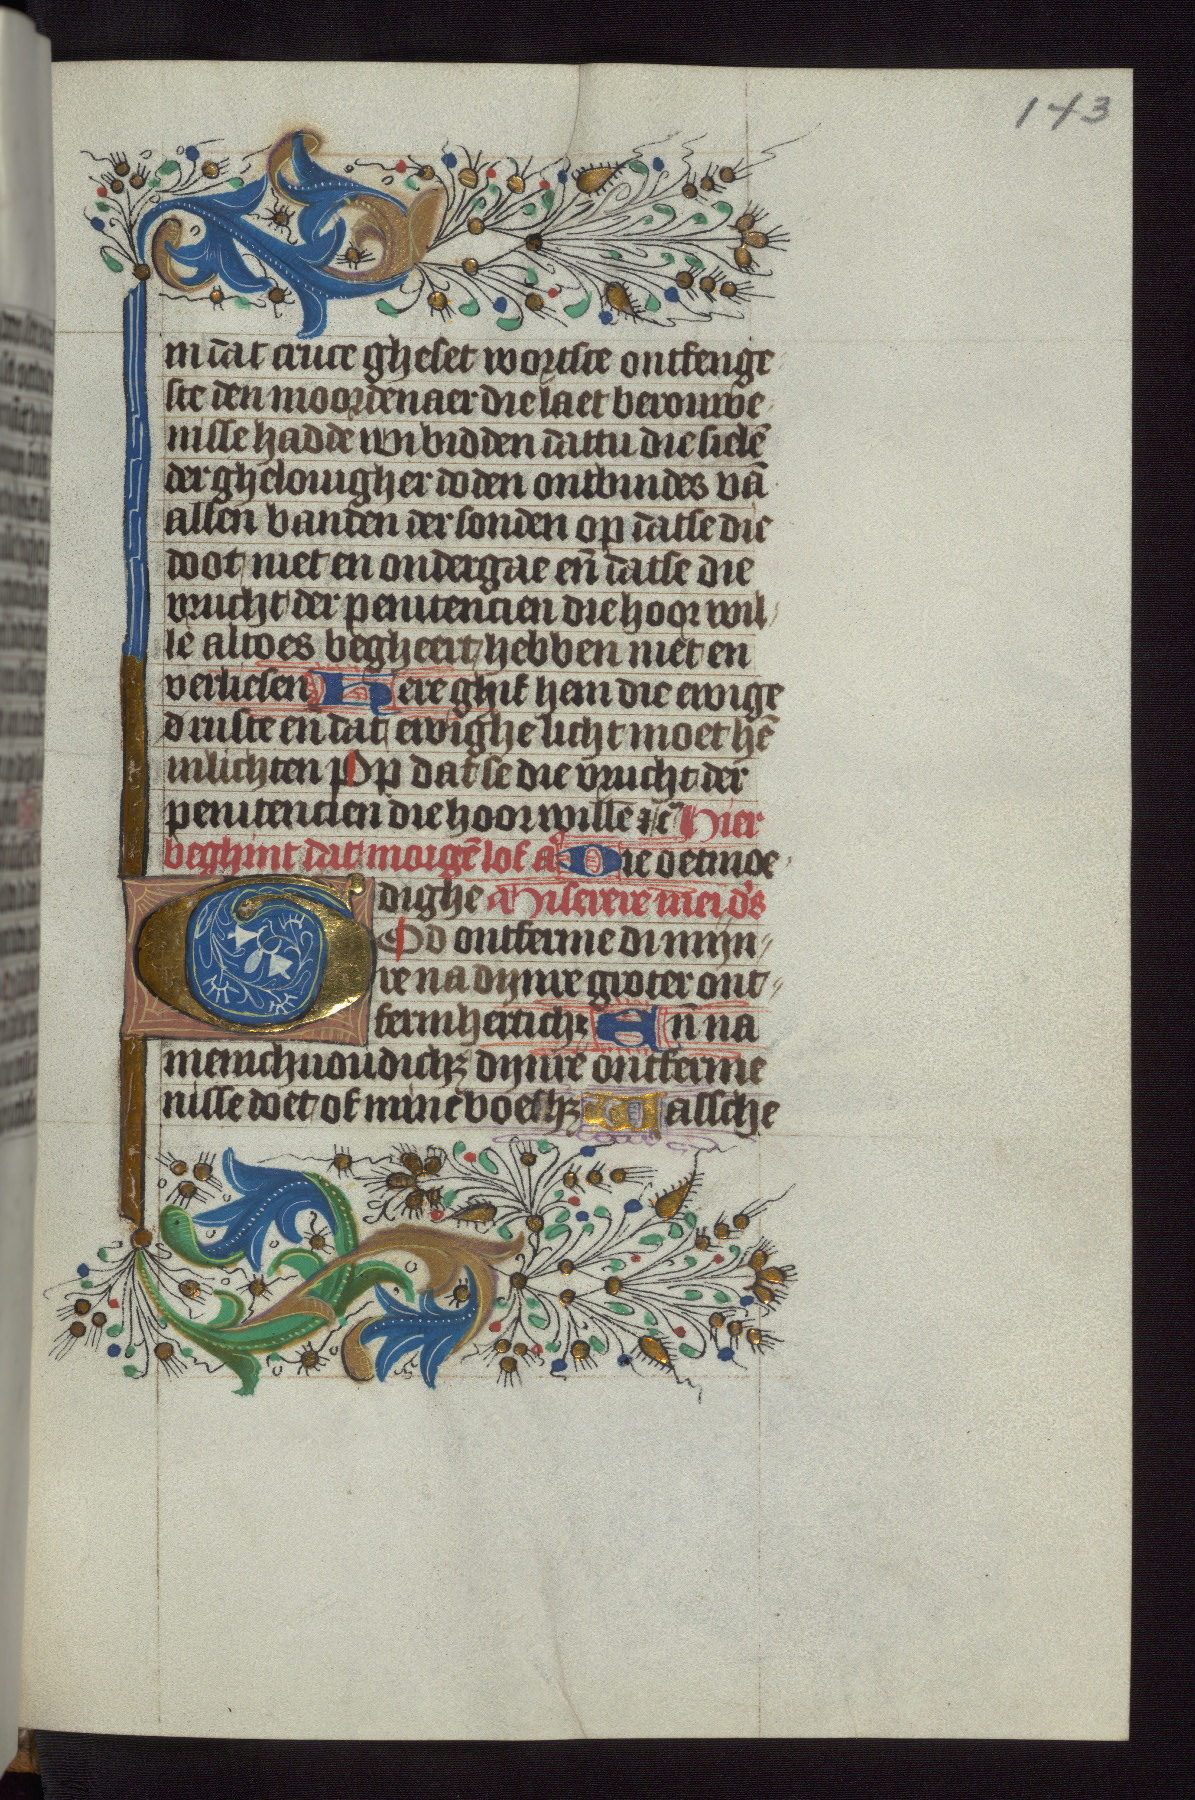 143
in dat cruce gheset wortste ontfenge
ste den moordenaer die laet berouwe
nisse hadde wi bidden dattu die sielē
der gheloui​gher doden ontbindes vā
allen banden der sonden op datse die
doot niet en ondergae eñ datse die
vrucht der penitencien die hoor wil
le altoes begheert hebben niet en
verliesen Here ghif hem die ewige
d ruste en dat ewighe licht moet hē
inlichten Op dat se die vrucht der
penitencien die hoor wille ⁊c̄ Hier
beghint dat morgē lof añ Die oetmoe
dighe Miserere mei d's
God ontferme di mijn
re na dijnre groter ont
fermherticħz Eñ na
menichuoudicħz dijnre ontferme
nisse doet of minē boesħz Wassche